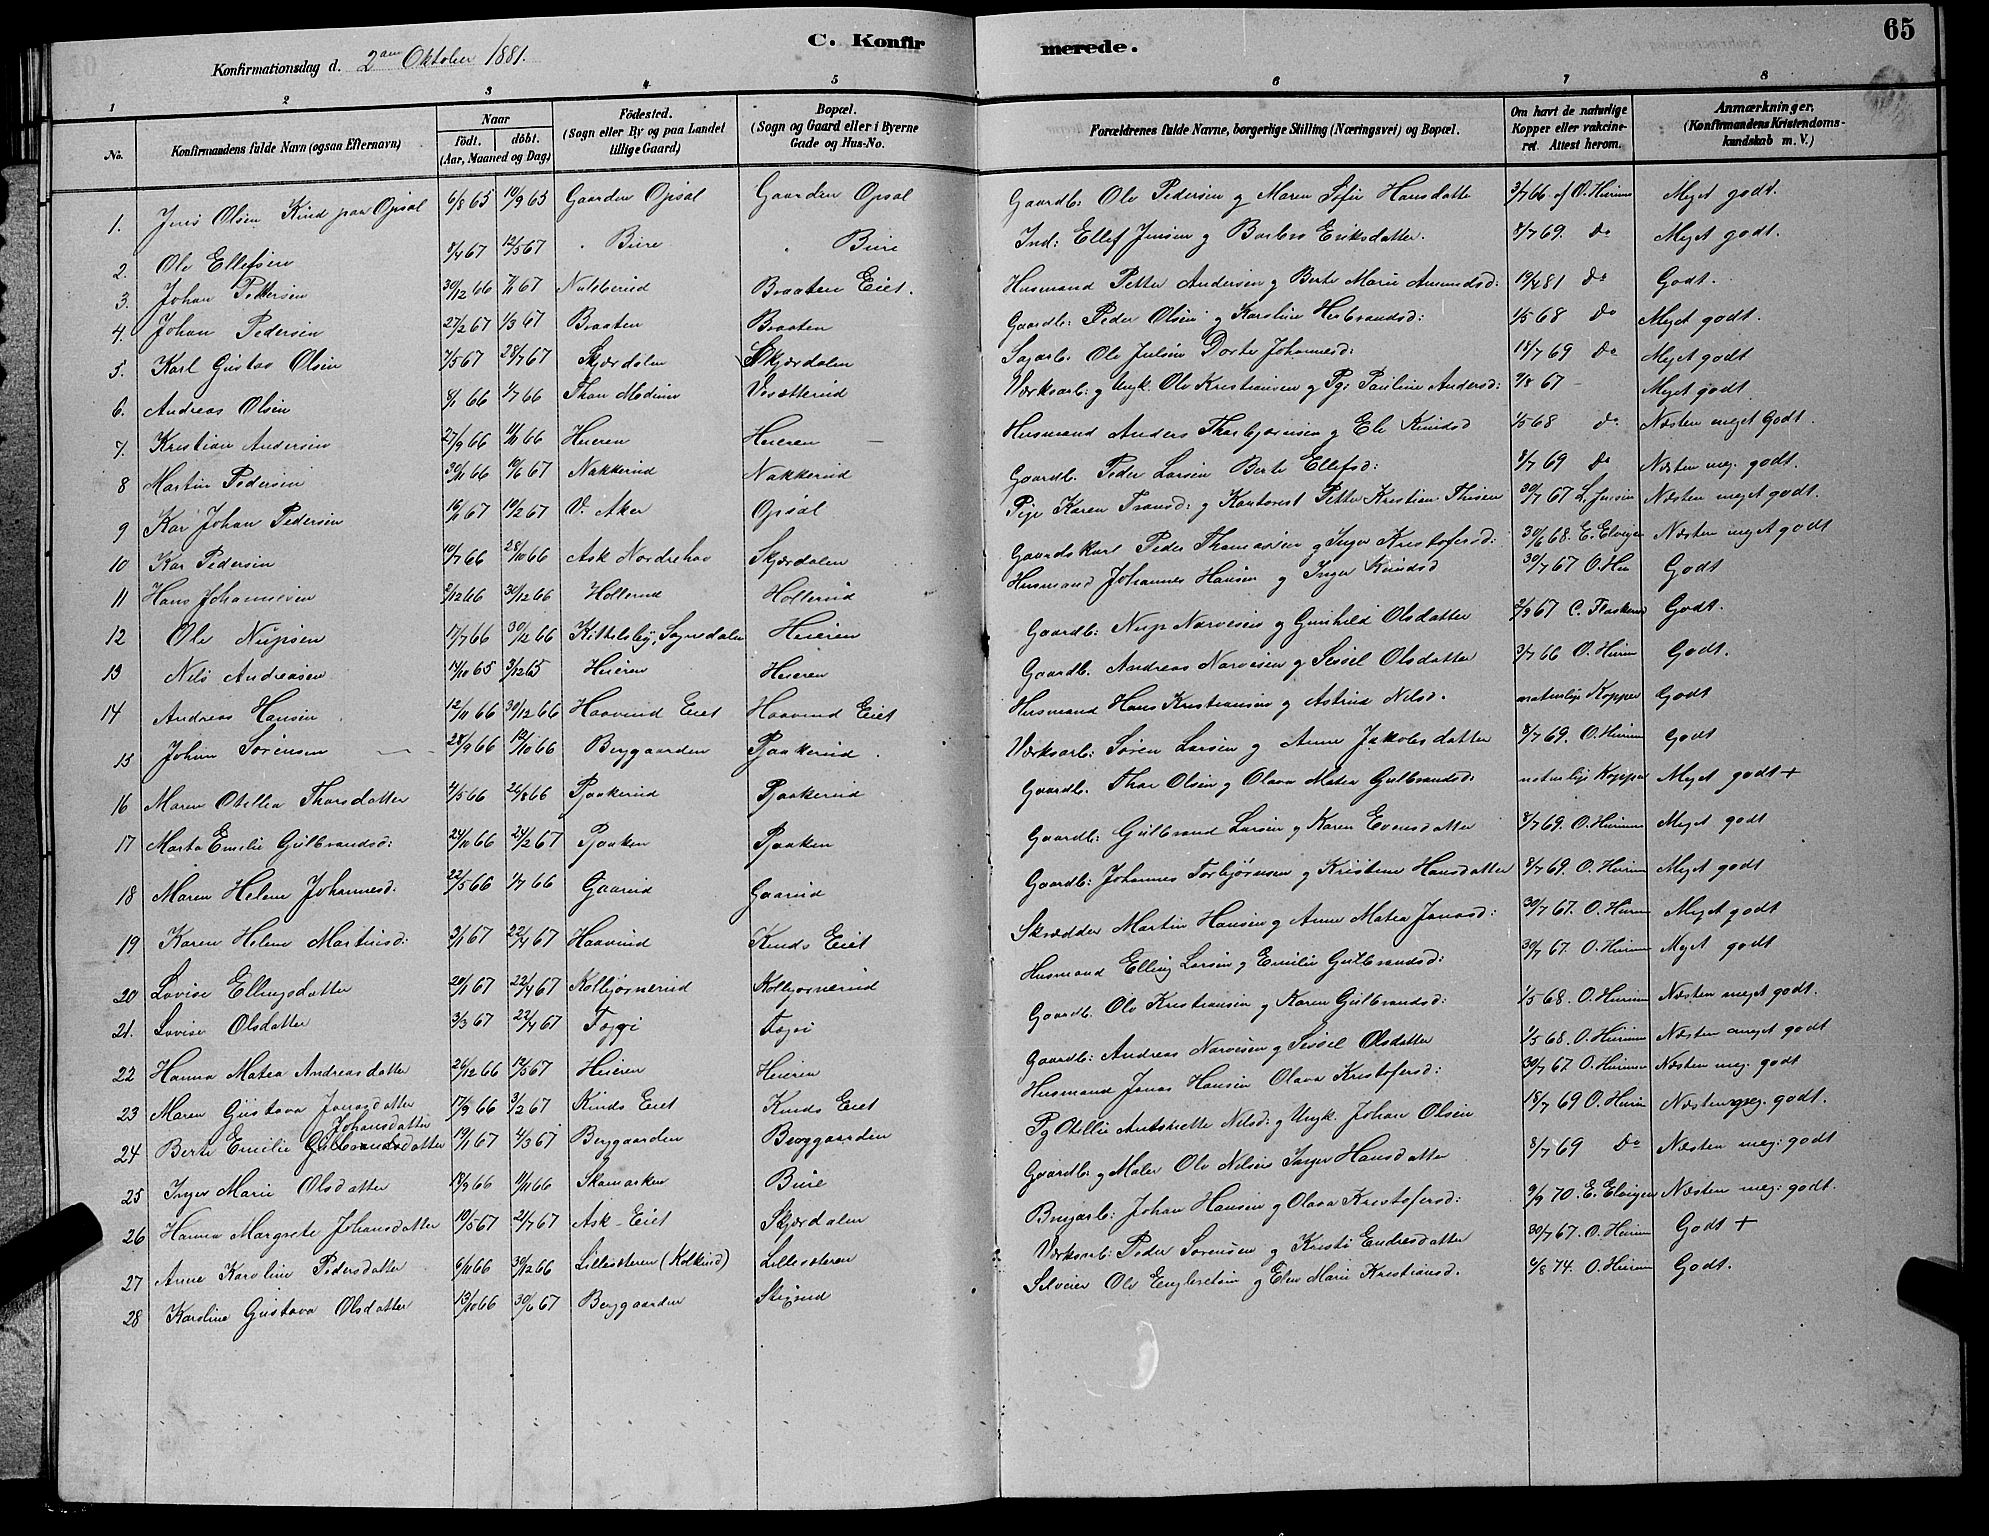 65
C. Konfirmerede.
Konfirmationsdag d. 2den Oktober 1881.
1 2 3 4 5 6 7 8
No. Konfirmandens fulde Navn (ogsaa Efternavn) Naar födt. döbt. (Aar, Maaned og Dag) Födested. (Sogn eller By og paa Landet tillige Gaard) Bopæl. (Sogn og Gaard eller i Byerne Gade og Hus-No. Forældrenes fulde Navne, borgerlige Stilling (Næringsvei) og Bopæl. Om havt de naturlige Kopper eller vakcineret. Attest herom. Anmærkninger. (Konfirmandens Kristendomskundskab m. V.)
1. Jens Olsen Kind paa Opsal 6/8 65 10/9 65 Gaarden Opsal Gaarden Opsal Gaardb: Ole Pedersen og Maren Sofie Hansdatte 3/7 66 af O. Heiren Meget godt.
2. Ole Ellefsen 8/4 67 12/5 67 " Bure " Bure Ind: Ellef Jensen og Barbro Eriksdatter. 8/7 69. Do Meget godt.
3. Johan Pettersen 30/12 66 67 Braaten Eiet. Husmand Petter Andersen og Berte Marie Amundsd: 19/4 81 Do Godt.
4. Johan Pedersen 27/2 67 1/3 67 Braaten Braaten Gaardb: Peder Olsen og Karoline Herbrandsd: 1/5 68 Do Meget godt.
5. Karl Gustav Olsen 7/5 67 28/7 67 Skjærdalen Skjærdalen Sagarb. Ole Julsen Dorte Johannesd: 18/7 69 Do Meget godt
6. Andreas Olsen 8/1 66 1/7 66 Thon Modum Vesætterud Værksarb: og Ungk. Ole Kristiansen og Pg: Pauline Andersd: 9/8 67 - Meget godt
7. Kristian Andersen 27/9 66 11/11 66 Heieren Heieren Husmand Anders Thorbjørnsen og Eli Knudsd 1/5 68 do Næsten meget Godt.
8 Martin Pedersen 30/11 66 10/6 67 Nakkerud Nakkerud Gaardb. Peder Larsen Berte Ellefsd: 8/7 69 Do Næsten meg. godt.
9 Kar Johan Pedersen 16/1 67 10/2 67 V. Aker Opsal Pige Karen Transd: og Kontorist Petter Kristian Thisen 30/7 67 L. Jensen Næsten meget godt.
10 Kar Pedersen 10/7 66 28/10 66 Ask Norderhov Skjærdalen Gaardskarl Peder Thomassen og Inger Kristofersd: 30/6 68. E. Elvigen Næsten meget godt
11 Hans Johannesen 2/12 66 30/12 66 Hollerud Hollerud Husmand Johannes Hansen og Inger Knudsd 30/7 67 O. Hei Godt
12 Ole Nupsen 17/7 66 30/12 66 Kittelsby, Sognedalen Heieren Gaardb: Nup Narvesen og Gunhild Olsdatter 2/9 67 C. Flaskerud Godt.
13 Nils Andreasen 14/10 65 3/12 65 Heieren Heieren Gaardb. Andreas Narvesen og Sissel Olsdatter 3/7 66 O. Heiren Godt.
14 Andreas Hansen 12/11 66 30/12 66 Haavind Eiet Haavind Eiet Husmand Hans Kristiansen og Astrid Nilsd. naturlige Kopper Godt
15 Johan Sørensen 28/9 66 12/10 66 Berggaarden Pjaakerud. Værksarb: Søren Larsen og Anne Jakobsdatter 8/7 69. O. Heiren Godt
16 Maren Otellia Thorsdatter 4/5 66 24/8 66 Pjaakerud Pjaakerud Gaardb. Thor Olsen og Olava Matea Gulbrandsd: naturlige Kopper Meget godt +
17 Marta Emelie Gulbrandsd: 24/10 66 24/2 67 Pjaaken Pjaaken Gaardb: Gulbrand Larsen og Karen Evensdatter 8/7 69. O. Heiren Meget godt
18 Maren Helene Johannesd. 22/5 66 1/7 66 Gaarud Gaarud Gaardb: Johannes Torbjørnsen og Kristine Hansdatter 8/7 69. O. Heiren Meget godt
19 Karen Helene Martinsd: 3/1 67 22/4 67 Haavind Kinds Eiet Skrædder Martin Hansen og Anne Matea Jonasd: 30/7 67. O. Heiren Meget godt
20 Lovise Ellingsdatter 20/1 67 22/4 67 Kolbjørnerud Kolbjørnerud Husmand Elling Larsen og Emilie Gulbrandsd: 30/7 67. O. Heiren Meget godt
21. Lovise Olsdatter 3/3 67 22/4 67 Fegri Fegri Gaardb. Ole Kristiansen og Karen Gulbrandsd: 1/5 68. O. Heiren Næsten meget godt.
22 Hanna Matea Andreasdatter 26/12 66 12/5 67 Heieren Heieren Gaardb: Andreas Narvesen og Sissel Olsdatter 1/5 68. O. Heiren Næsten meget godt
23 Maren Gustava Jonasdatter 17/9 66 3/2 67 Kinds Eiet Kinds Eiet Husmand Jonas Hansen Olava Kristofersd: 30/7 67 O. Heiren Næsten meg. godt
24 Berte Emilie Gulbrandsdatter Johansdatter 19/1 67 4/3 67 Berggaarden Berggaarden Pg Otellie Antonette Nilsd: og Ungk. Johan Olsen 18/7 69 O. Heiren Næsten meg. godt.
25 Inger Marie Olsdatter 14/9 66 11/11 66 Skamarken Bure Gaardb: og Maler Ole Nilsen Inger Hansdatter 8/7 69 Do Næsten meg: godt
26 Hanna Margrete Johansdatter 10/5 67 21/7 67 Ask-Eiet Skjærdalen Brugarb: Johan Hansen og Olava Kristofersd: 9/9 70. E. Elvigen Næsten meg: godt.
27 Anne Karoline Pedersdatter 6/11 66 30/12 66 Lillesæteren (Kolkind) Lillesæteren Værksarb: Peder Sørensen og Kristi Endresdatter 30/7 67. O. Heiren Godt +
28 Karoline Gustava Olsdatter 13/10 66 30/6 67 Berggaarden Stigsrud Selveier Ole Engbretsen og Elen Marie Kristiansd. 4/8 74. O. Heiren Godt.